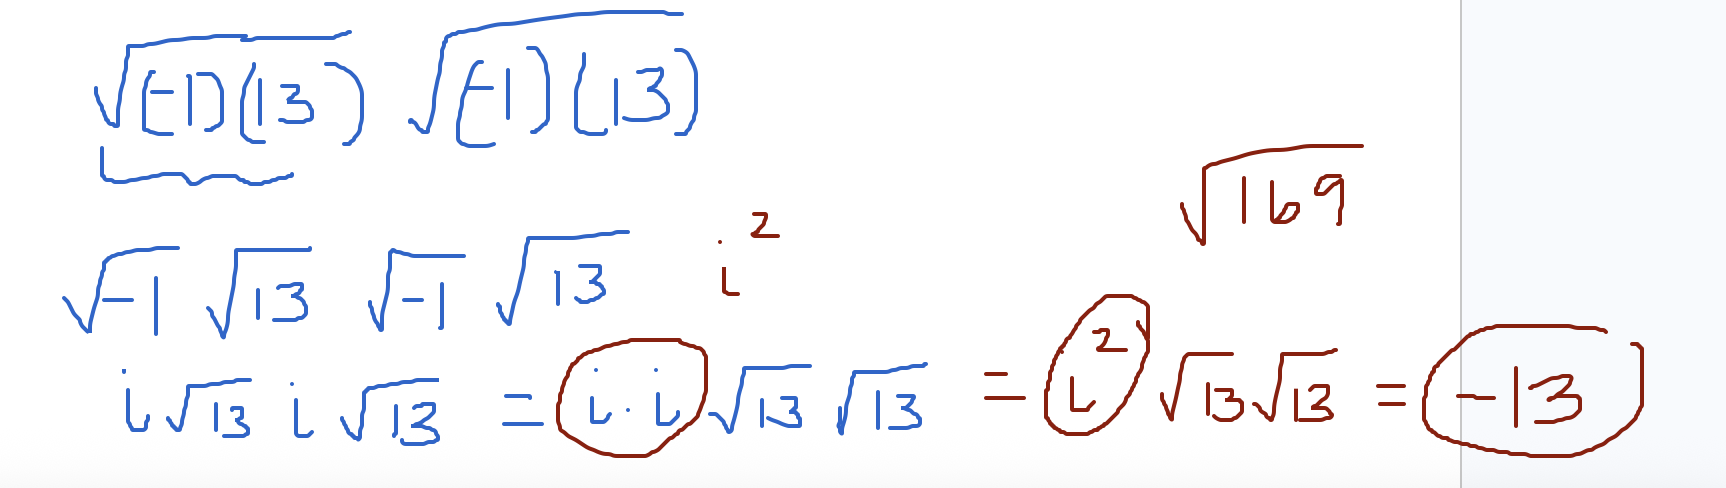 √(-1)(13) √(-1)(13)
√169
i²
√-1 √13 √-1 √13
i√13 i√13 = i·i√13√13 = i²√13√13 = -13